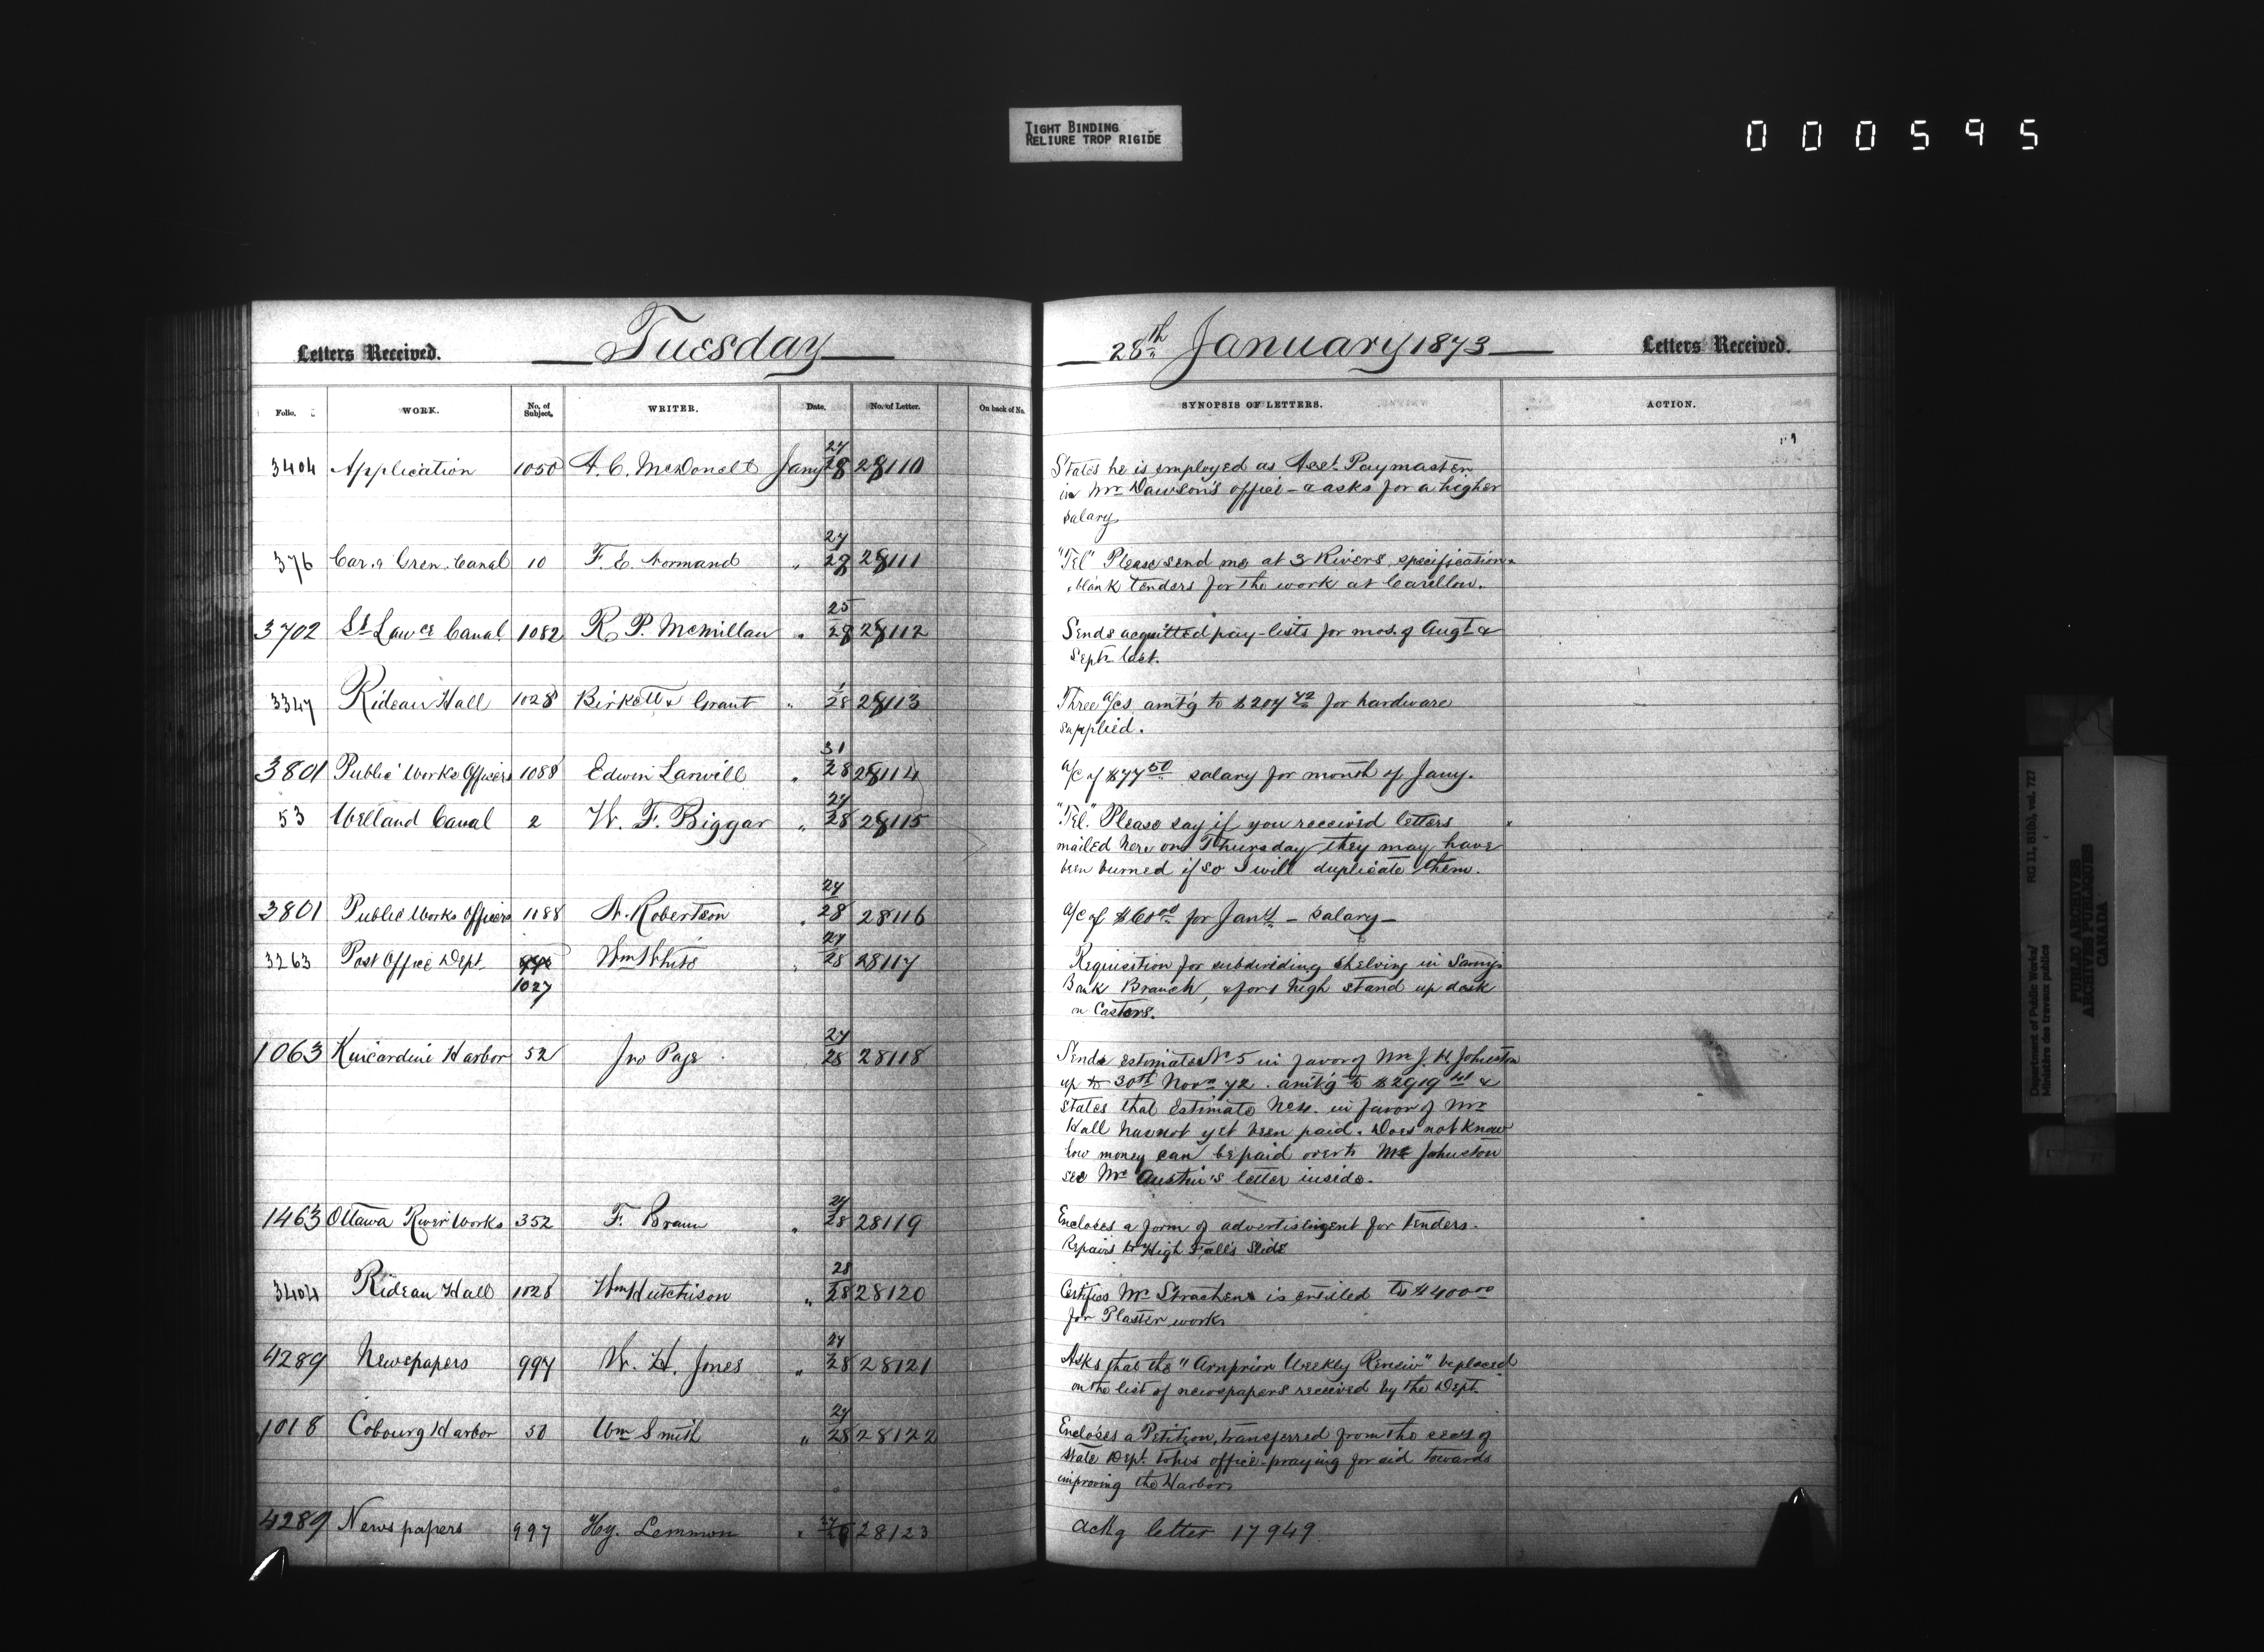 TIGHT BINDING
RELIURE TROP RIGIDE
000595
Letters Received. Tuesday
Folio. WORK. No. of Subject. WRITER. Date. No. of Letter. On back of No.
3404 Application 1050 A. C. McDonelt Jany 27/28 28110
376 Car. & Gren. Canal 10 F. E. Normand " 27/28 28111
3702 St Lawce Canal 1082 R. P. McMillan " 25/28 28112
3347 Rideau Hall 1028 Birkett & Grant " 1/28 28113
3801 Public Works Officers 1088 Edwin Larwill " 31/28 28114
53 Welland Canal 2 W. F. Biggar " 27/28 28115
3801 Public Works Officers 1188 A. Robertson " 27/28 28116
3263 Post Office Dept. 1027 Wm White " 27/28 28117
1063 Kincardine Harbor 52 Jno Page 27/28 28118
1463 Ottawa River Works 352 F. Braun " 27/28 28119
3404 Rideau Hall 1028 Wm Hutchison " 28/28 28120
4289 Newspapers 997 W. H. Jones " 27/28 28121
1018 Cobourg Harbor 50 Wm Smith " 27/28 28122
4289 Newspapers 997 Hy. Lemmon " 27/28 28123
28th January 1873 Letters Received.
SYNOPSIS OF LETTERS. ACTION.
States he is employed as Asst. Paymaster
in Mr Dawson's office - & asks for a higher
salary
"Tel" Please send me at 3 Rivers, specification
& blank tenders for the work at Carillon.
Sends acquitted pay-lists for mos. of Augt &
Septr last.
Three a/cs amt'g to $204 72 for hardware
supplied.
a/c of $77 50 salary for month of Jany.
"Tel." Please say if you received letters
mailed here on Thursday they may have
been burned if so I will duplicate them.
a/c of $60 00 for Jany - salary -
Requisition for subdividing shelving in Savngs
Bank Branch, & for 1 high stand up desk
on Castors.
Sends estimate No 5 in favor of Mr J. H. Johnston
up to 30th Novr 72. amt'g to $2919 41 &
states that Estimate No 4. in favor of Mr
Hall has not yet been paid. Does not know
how money can be paid over to Mr Johnston
see Mr Austin's letter inside.
Encloses a form of advertisement for tenders.
Repairs to High Falls Slide
Certifies Mr Strachen is entitled to $400 00
for Plaster work
Asks that the "Arnprior Weekly Review" be placed
on the list of newspapers received by the Dept.
Encloses a Petition, transferred from the secy of
State Dept. to his office - praying for aid towards
improving the Harbor
ackg letter 17949
Department of Public Works/
Ministère des travaux publics
RG 11, B1(b), vol. 727
PUBLIC ARCHIVES
ARCHIVES PUBLIQUES
CANADA